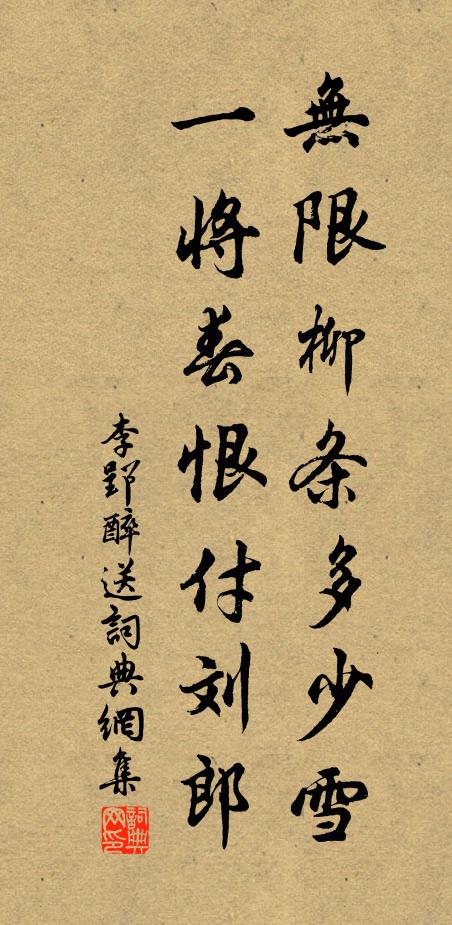 無限柳条多少雪
一将春恨付刘郎
李郢醉送詞典網集
詞典
网印